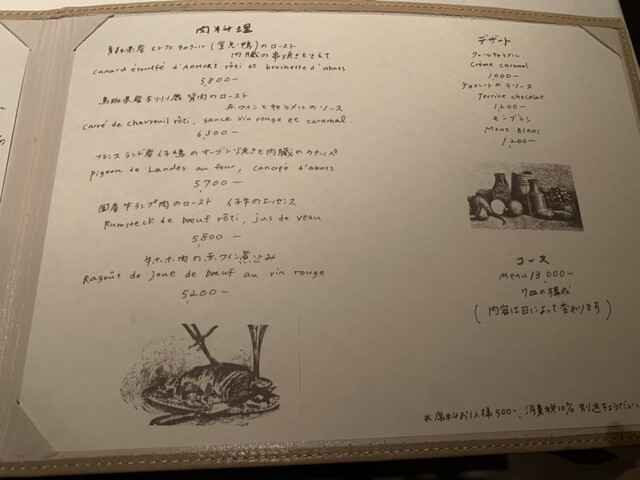 肉料理
青森県産 (窒息鴨)のロースト
内臓の串焼きをそえて
canard étouffé d'AOMORI rôti et brochette d'abats
5,800-
鳥取県産 鹿 背肉のロースト
赤ワインとキャラメルのソース
carré de chevreuil rôti, sauce vin rouge et caramel.
6,800-
フランス ランド産 仔鳩のオーブン焼きと内臓のカナッペ
pigeon de Landes au four, canapé d'abats
5,700-
国産牛ランプ肉のロースト 仔牛のエッセンス
Rumsteck de bœuf rôti, jus de veau
5,800-
牛ホホ肉の赤ワイン煮込み
Ragoût de joue de bœuf au vin rouge
5,200-
デザート
クレームキャラメル
Crème caramel
1,000-
チョコレートのテリーヌ
Terrine chocolat
1,200-
モンブラン
Mont Blanc
1,200-
コース
Menu 13,000-
7皿の構成
(内容は日によって変わります)
※席料お1人様500-、消費税10%別途ちょうだい